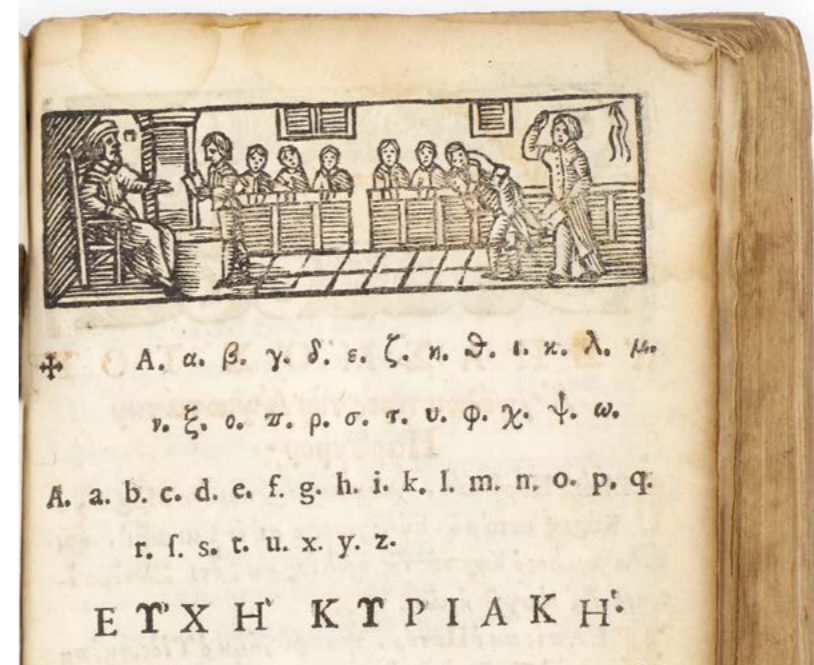 ✠ Α. α. β. γ. δ. ε. ζ. η. ϑ. ι. κ. λ. μ.
ν. ξ. ο. ϖ. ρ. σ. τ. υ. φ. χ. ψ. ω.
A. a. b. c. d. e. f. g. h. i. k. l. m. n. o. p. q.
r. ſ. s. t. u. x. y. z.
ΕΥ̓ΧῊ ΚΥΡΙΑΚῊ·